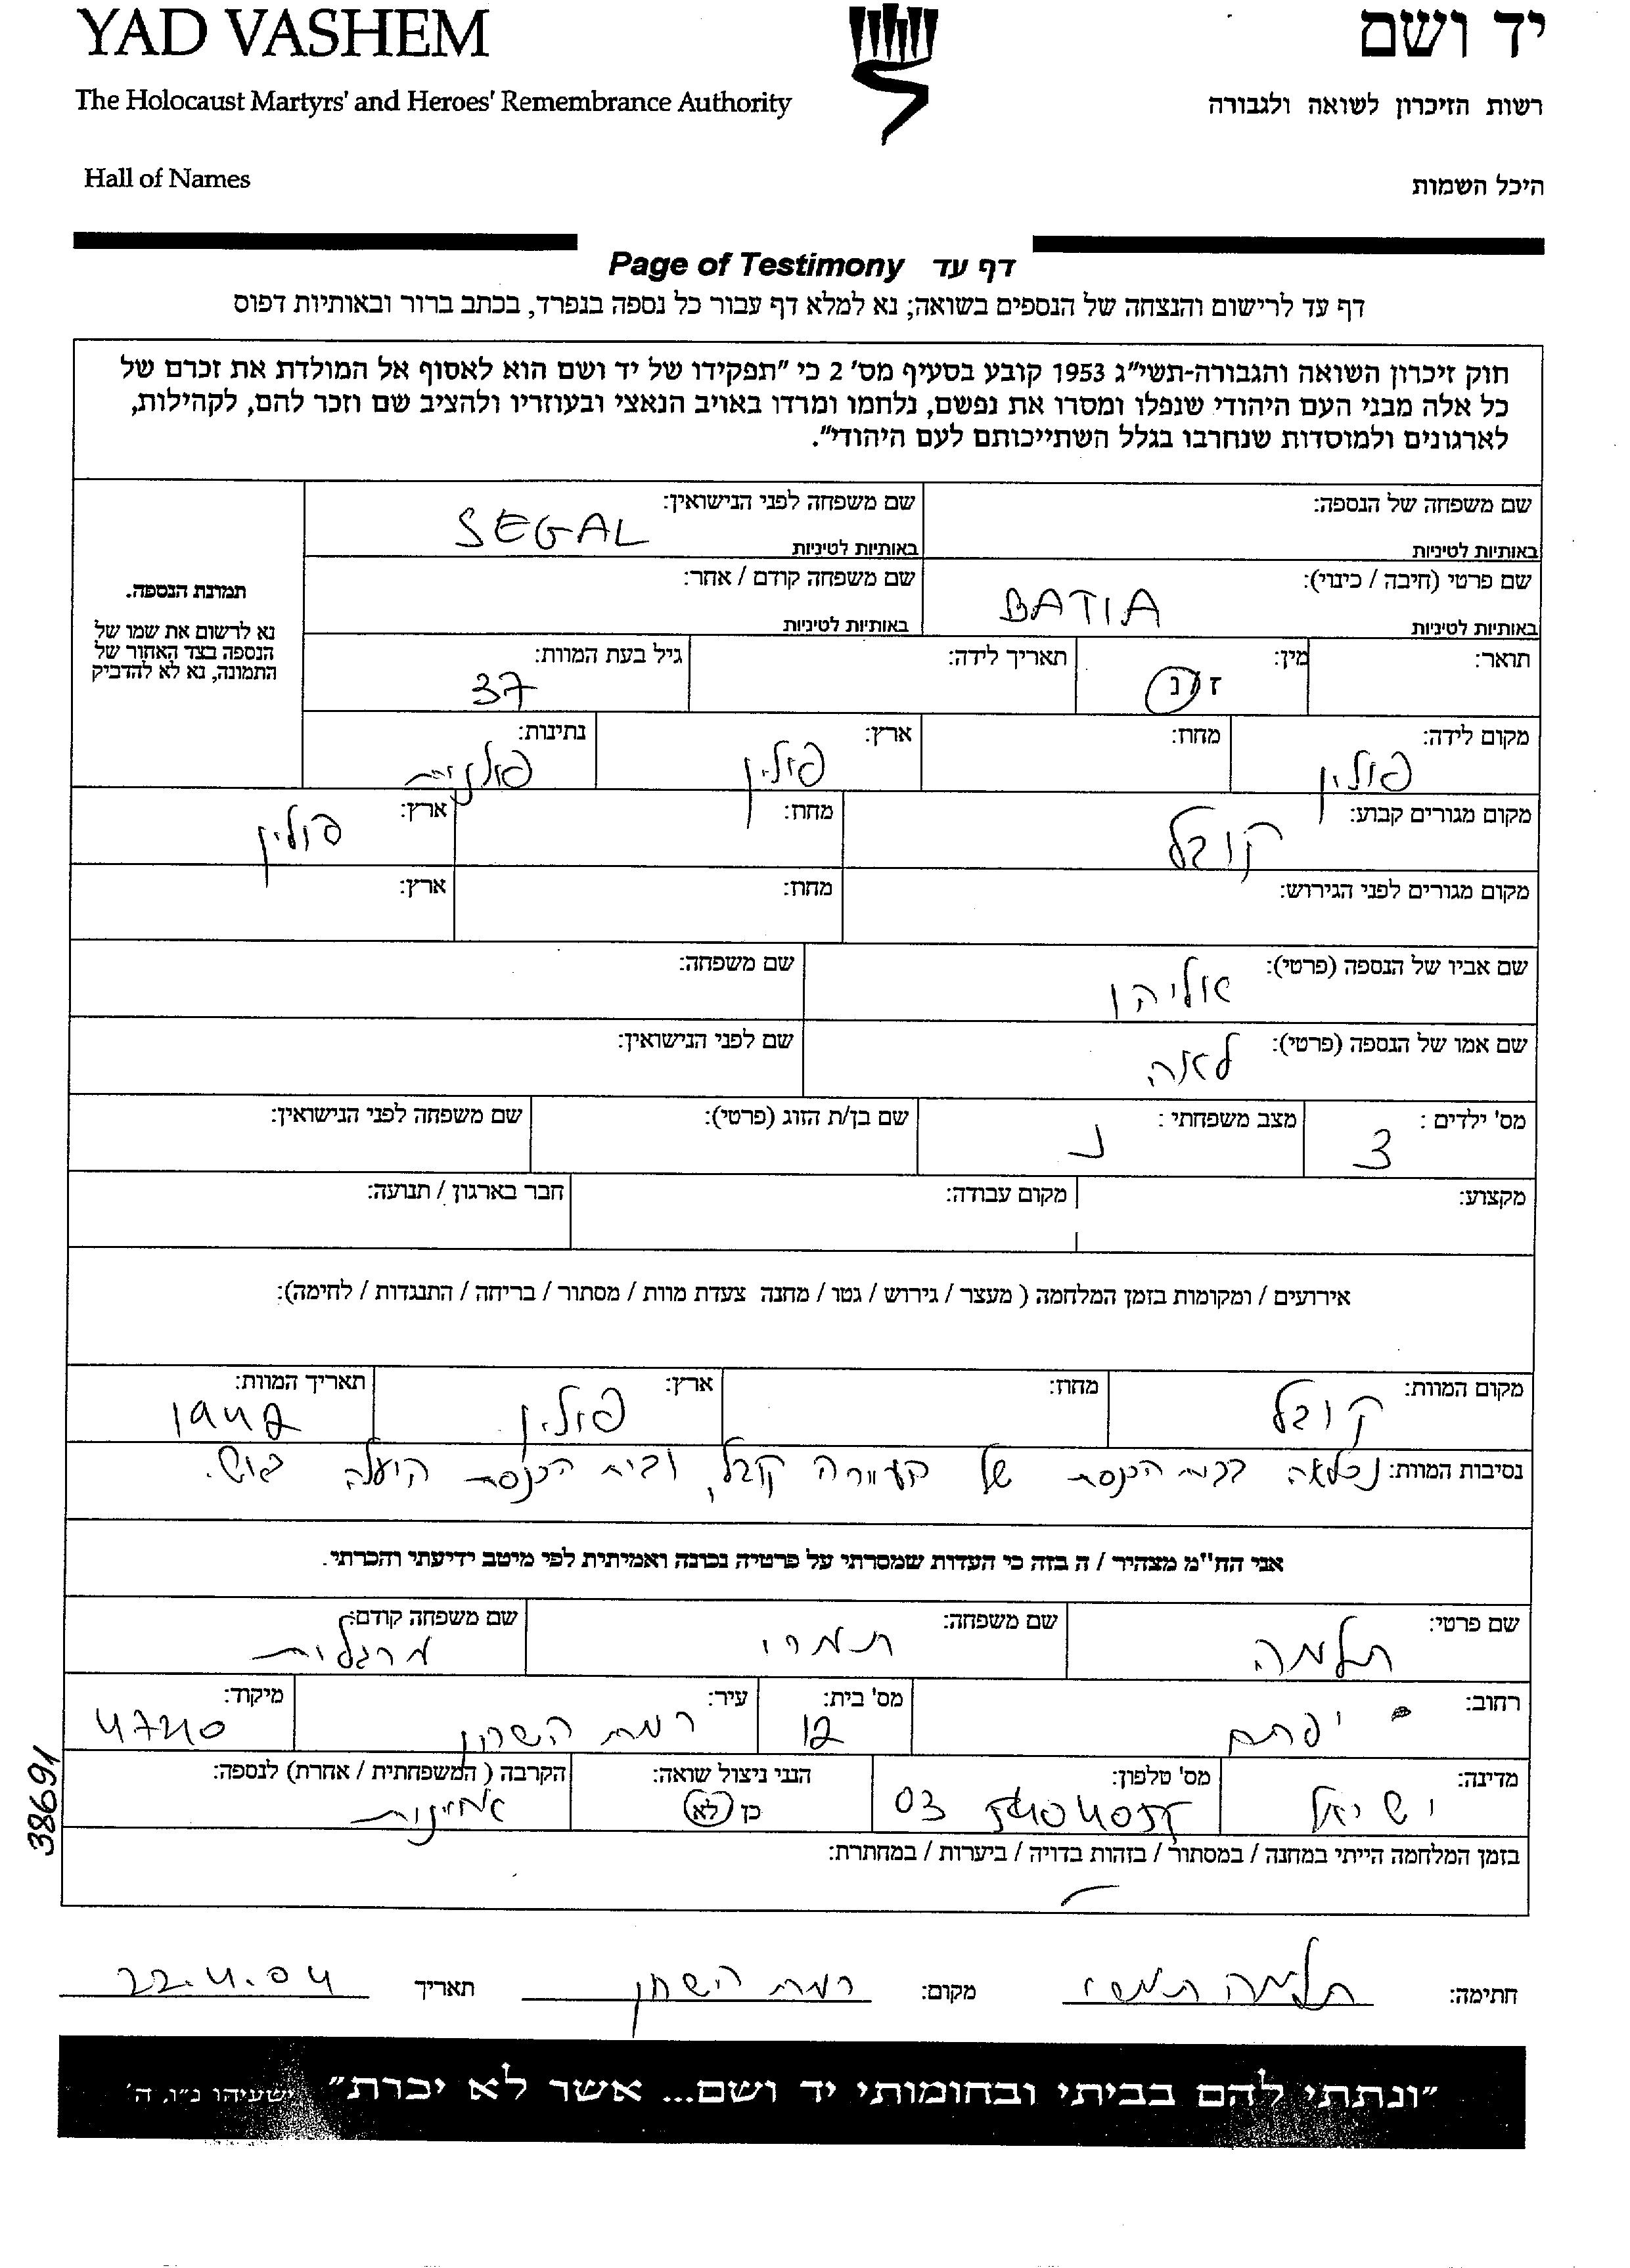 YAD VASHEM
יד ושם
The Holocaust Martyrs' and Heroes' Remembrance Authority
רשות הזיכרון לשואה ולגבורה
Hall of Names
היכל השמות
Page of Testimony דף עד
דף עד לרישום והנצחה של הנספים בשואה; נא למלא דף עבור כל נספה בנפרד, בכתב ברור ובאותיות דפוס
חוק זיכרון השואה והגבורה-תשי"ג 1953 קובע בסעיף מס' 2 כי "תפקידו של יד ושם הוא לאסוף אל המולדת את זכרם של
כל אלה מבני העם היהודי שנפלו ומסרו את נפשם, נלחמו ומרדו באויב הנאצי ובעוזריו ולהציב שם וזכר להם, לקהילות,
לארגונים ולמוסדות שנחרבו בגלל השתייכותם לעם היהודי".
שם משפחה של הנספה:
באותיות לטיניות
שם משפחה לפני הנישואין:
SEGAL
באותיות לטיניות
תמונת הנספה.
נא לרשום את שמו של
הנספה בצד האחור של
התמונה, נא לא להדביק
שם פרטי (חיבה / כינוי):
BATIA
באותיות לטיניות
שם משפחה קודם / אחר:
באותיות לטיניות
תואר:
מין:
ז / נ
תאריך לידה:
גיל בעת המוות:
37
מקום לידה:
פולין
מחוז:
ארץ:
פולין
נתינות:
פולנית
מקום מגורים קבוע:
קובל
מחוז:
ארץ:
פולין
מקום מגורים לפני הגירוש:
מחוז:
ארץ:
שם אביו של הנספה (פרטי):
אליהו
שם משפחה:
שם אמו של הנספה (פרטי):
לאה
שם לפני הנישואין:
מס' ילדים :
3
מצב משפחתי :
נ
שם בן/ת הזוג (פרטי):
שם משפחה לפני הנישואין:
מקצוע:
מקום עבודה:
חבר בארגון / תנועה:
אירועים / ומקומות בזמן המלחמה ( מעצר / גירוש / גטו / מחנה צעדת מוות / מסתור / בריחה / התנגדות / לחימה):
מקום המוות:
קובל
מחוז:
ארץ:
פולין
תאריך המוות:
1942
נסיבות המוות: נכלאה בבית הכנסת של העיירה קובל, ובית הכנסת הועלה באש.
אני הח"מ מצהיר / ה בזה כי העדות שמסרתי על פרטיה נכונה ואמיתית לפי מיטב ידיעתי והכרתי.
שם פרטי:
תלמה
שם משפחה:
תמרי
שם משפחה קודם:
מרגלית
רחוב:
יפתח
מס' בית:
12
עיר:
רמת השרון
מיקוד:
47240
מדינה:
ישראל
מס' טלפון:
03
הנני ניצול שואה:
כן / לא
הקרבה ( המשפחתית / אחרת) לנספה:
אחיינית
בזמן המלחמה הייתי במחנה / במסתור / בזהות בדויה / ביערות / במחתרת:
38691
חתימה: תלמה תמרי
מקום: רמת השרון
תאריך 22.4.04
"ונתתי להם בביתי ובחומותי יד ושם... אשר לא יכרת" ישעיהו נ"ו, ה'